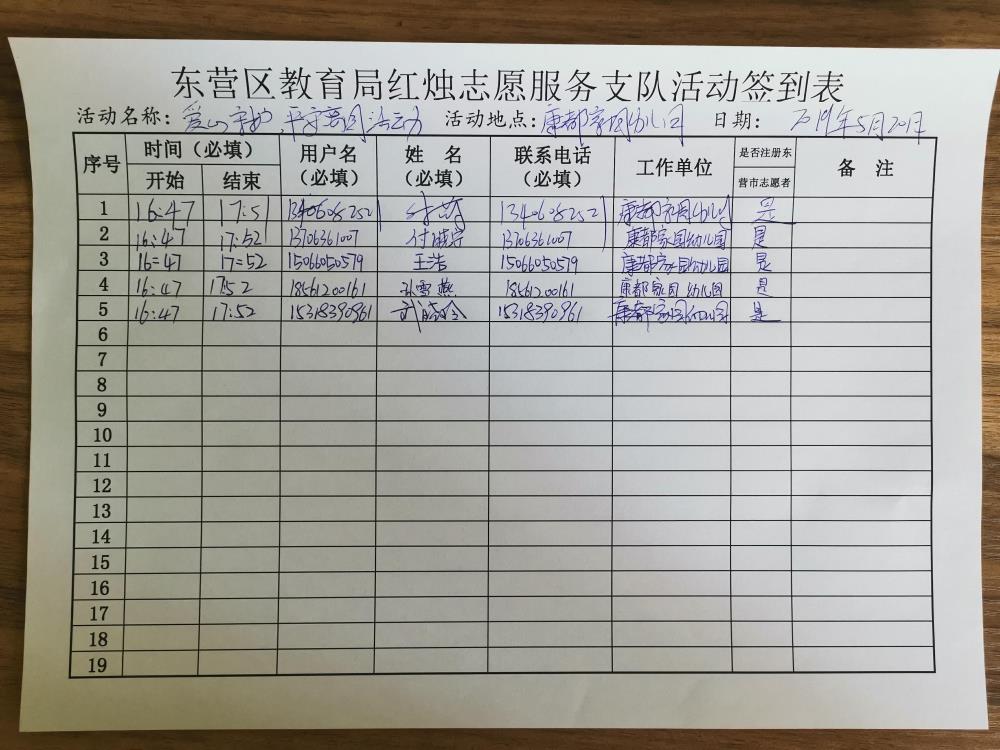 东营区教育局红烛志愿服务支队活动签到表
活动名称： 活动地点：康都家园幼儿园 日期： 2019年5月20日
序号 时间（必填） 用户名（必填） 姓 名（必填） 联系电话（必填） 工作单位 是否注册东营市志愿者 备 注
开始 结束
1 16:47 17:51 康都家园幼儿园 是
2 16:47 17:52 13706361007 付晓宁 13706361007 康都家园幼儿园 是
3 16=47 17=52 15066050579 王浩 15066050579 康都家园幼儿园 是
4 16:47 1752 18561200161 孙雪燕 18561200161 康都家园幼儿园 是
5 16:47 17:52 15318390961 15318390961 康都家园幼儿园 是
6
7
8
9
10
11
12
13
14
15
16
17
18
19